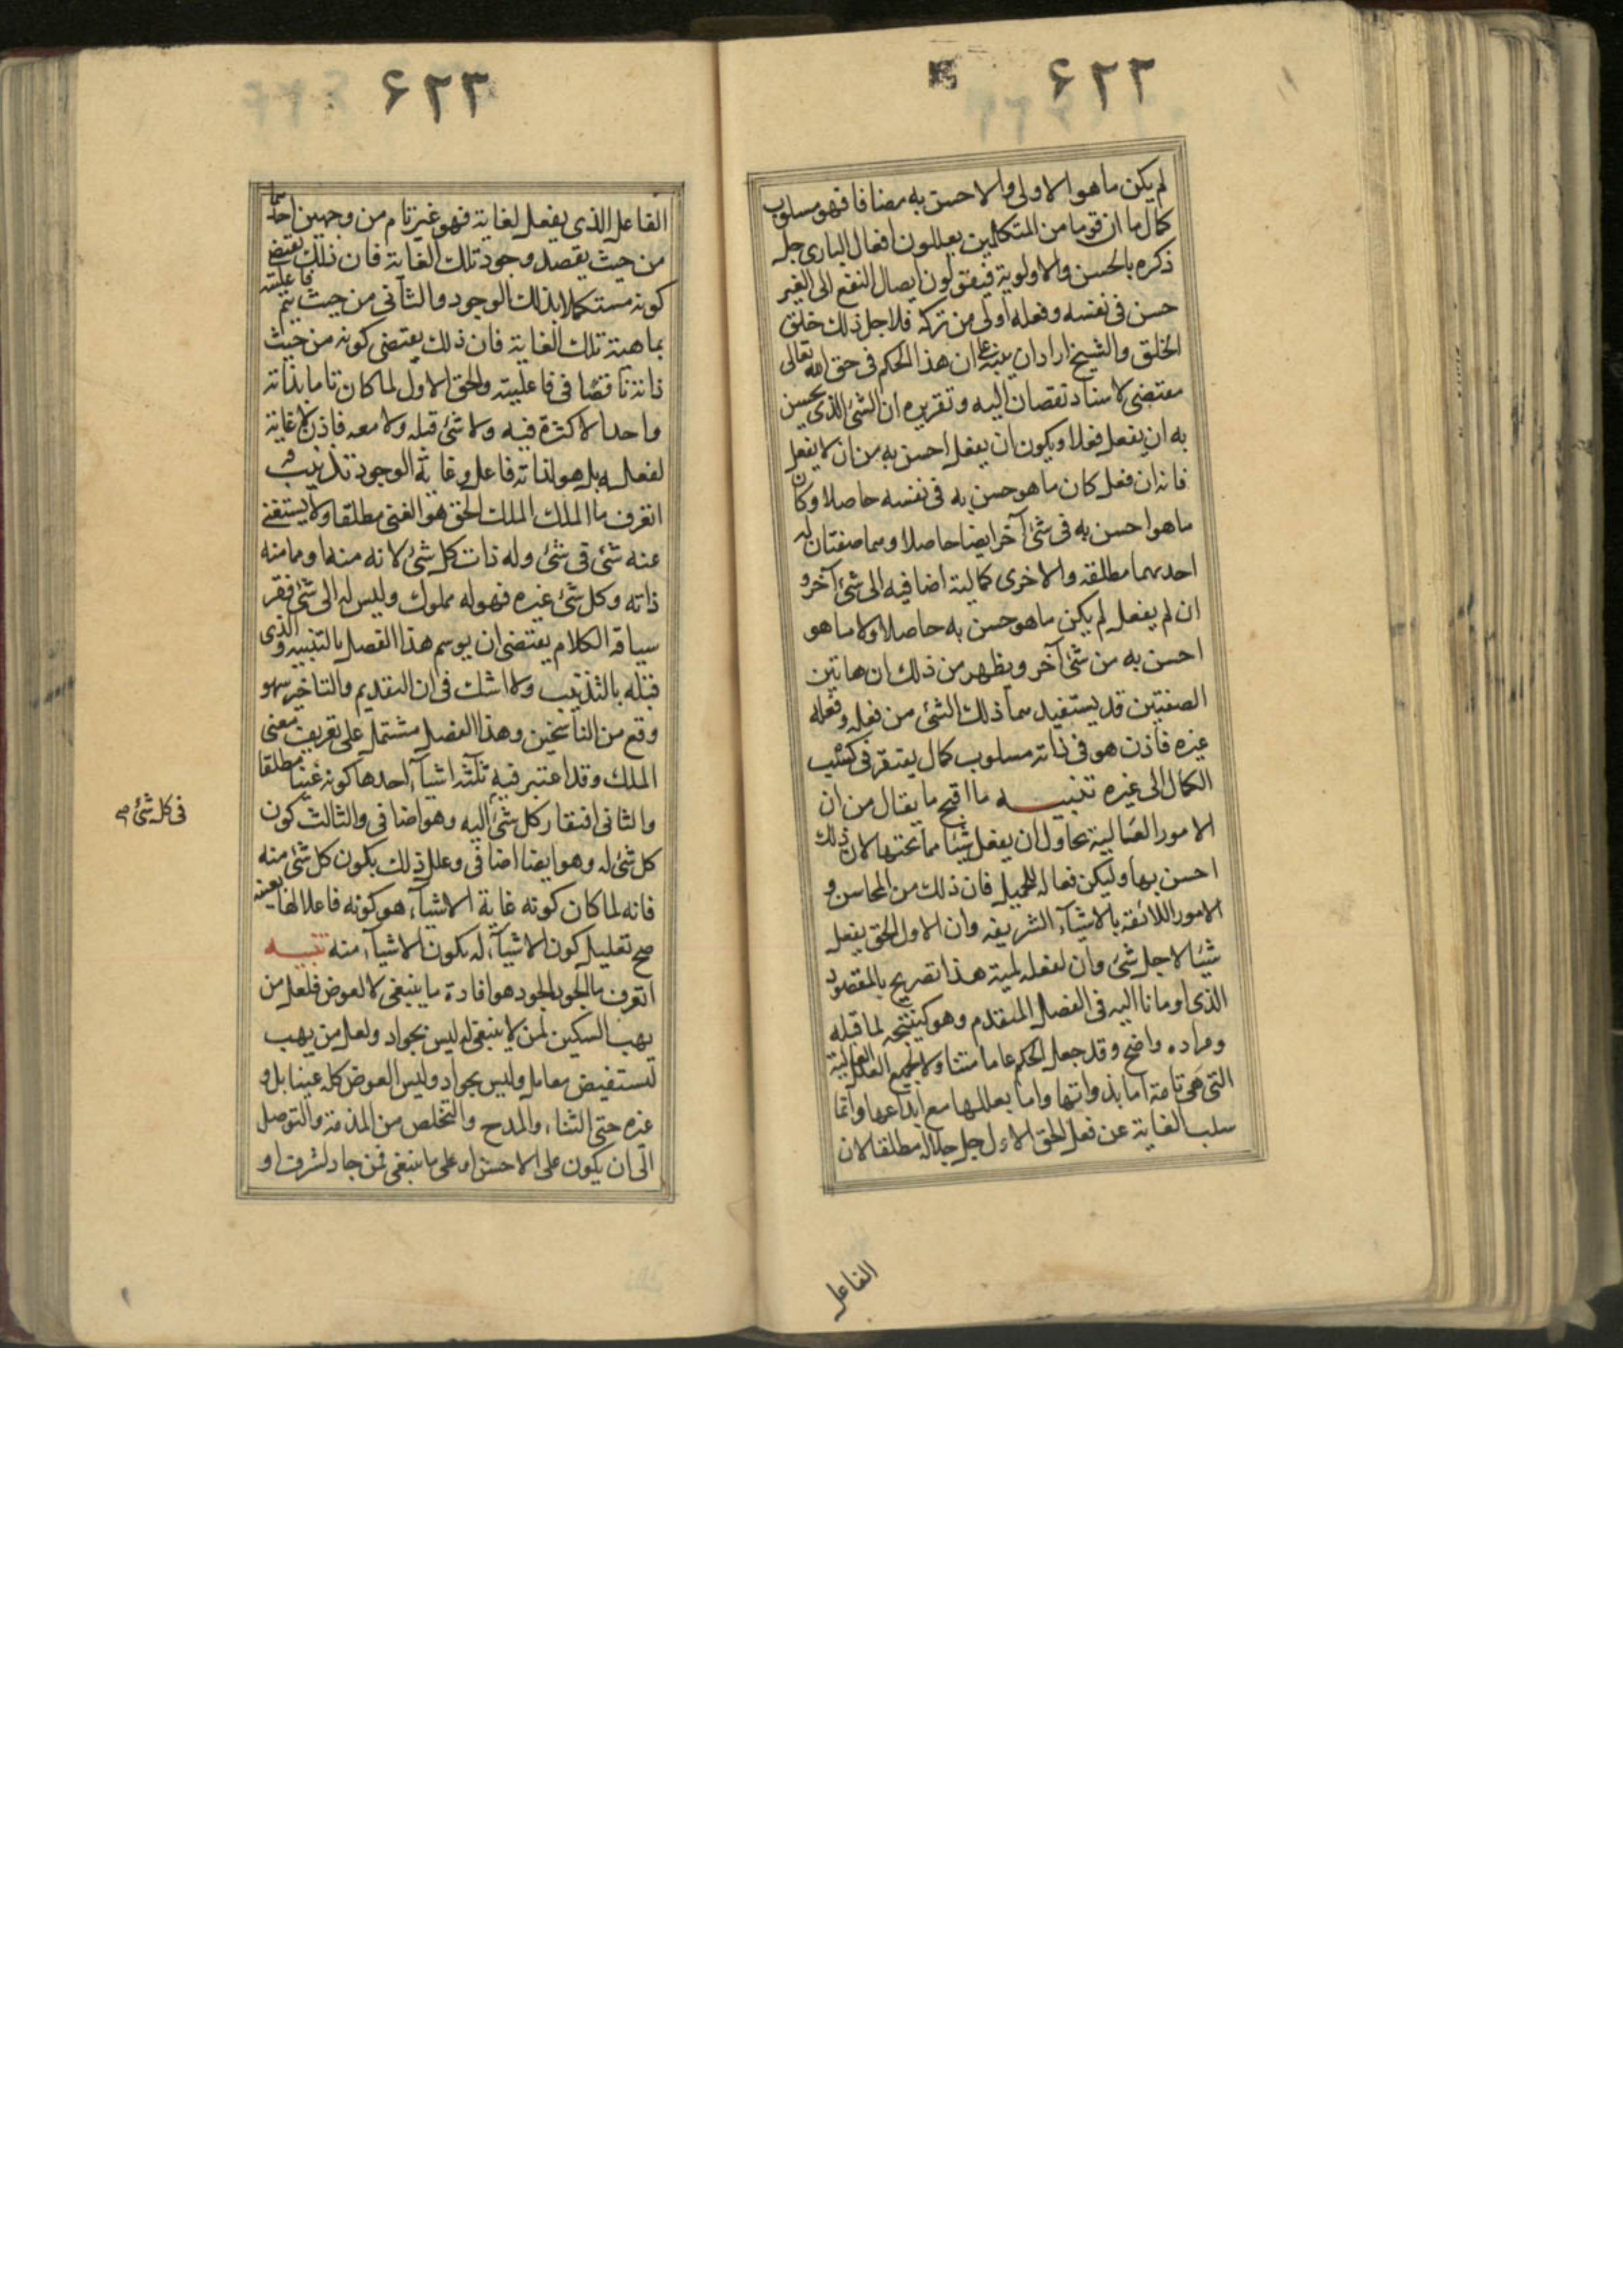 ۶۲۲
لم يكن ما هو الاولى والاحسن به مضافا فهو مسلوب
كمال ما ان قوما من المتكلمين يعللون افعال البارى جل
ذكره بالحسن والاولوية فيقولون ايصال النفع الى الغير
حسن فى نفسه وفعله اولى من تركه فلاجل ذلك خلق
الخلق والشيخ اراد ان ينبه على ان هذا الحكم فى حق الله تعالى
مقتضى لاسناد نقصان اليه وتقريره ان الشئ الذى يحسن
به ان يفعل فعلا ويكون ان يفعل احسن به من ان لا يفعل
فانه ان فعل كان ما هو حسن به فى نفسه حاصلا وكان
ما هو احسن به فى شئ آخر ايضا حاصلا وهما صفتان له
احديهما مطلقه والاخرى كمالية اضافيه الى شئ آخر و
ان لم يفعل لم يكن ما هو حسن به حاصلا ولا ما هو
احسن به من شئ آخر ويظهر من ذلك ان هاتين
الصفتين قد يستفيدهما ذلك الشئ من فعله وفعله
غيره فاذن هو فى ذاته مسلوب كمال يفتقر فى كسب
الكمال الى غيره تنبيه ما اقبح ما يقال من ان
الامور العالية تحاول ان يفعل شيئا مما تحتها لان ذلك
احسن بها وليكن فعاله للجميل فان ذلك من المحاسن و
الامور اللائقه بالاشيآء الشريفه وان الاول الحق يفعل
شيئا لاجل شئ وان لفعله لمية هذا تصريح بالمقصود
الذى اومانا اليه فى الفصل المتقدم وهو كنتيجه لما قبله
ومراده واضح وقد جعل الحكم عاما متناولا لجميع العلل العالية
التى هى تامة اما بذواتها واما بعللها مع ابداعها وانما
سلب الغاية عن فعل الحق الاول جل جلاله مطلقا لان
الفاعل
۶۲۳
الفاعل الذى يفعل لغاية فهو غير تام من وجهين احدهما
من حيث يقصد وجود تلك الغاية فان ذلك يقتضى
كونه مستكملا بذلك الوجود والثانى من حيث يتم فاعليته
بماهية تلك الغاية فان ذلك يقتضى كونه من حيث
ذاته ناقصا فى فاعليته والحق الاول لما كان تاما بذاته
واحدا لا كثرة فيه ولا شئ قبله ولا معه فاذن لا غاية
لفعله بل هو لذاته فاعل وغاية الوجود تذنيب
اتعرف ما الملك الملك الحق هو الغنى مطلقا ولا يستغنى
عنه شئ فى شئ وله ذات كل شئ لانه منه او مما منه
ذاته وكل شئ غيره فهو له مملوك وليس له الى شئ فقر
سياقه الكلام يقتضى ان يوسم هذا الفصل بالتنبيه والذى
قبله بالتذنيب ولا شك فى ان التقديم والتاخير سهو
وقع من الناسخين وهذا الفصل مشتمل على تعريف معنى
الملك وقد اعتبر فيه ثلثه اشيآء احدها كونه غنيا مطلقا
والثانى افتقار كل شئ اليه وهو اضافى والثالث كون
فى كل شئ صح
كل شئ له وهو ايضا اضافى وعلل ذلك بكون كل شئ منه
فانه لما كان كونه غاية الاشيآء هو كونه فاعلا لها بعينه
صح تعليل كون الاشيآء له بكون الاشيآء منه تنبيه
اتعرف ما الجود الجود هو افادة ما ينبغى لا لعوض فلعل من
يهب السكين لمن لا ينبغى له ليس بجواد ولعل من يهب
ليستفيض معامل وليس بجواد وليس العوض كله عينا بل و
غيره حتى الثناء والمدح والتخلص من المذمة والتوصل
الى ان يكون على الاحسن او على ما ينبغى فمن جاد لشرف او